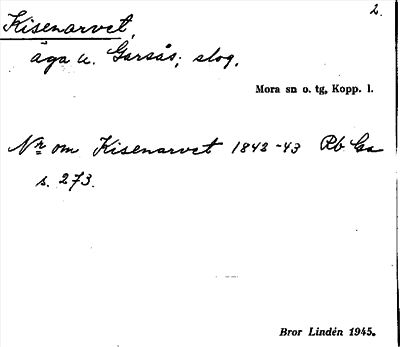 Kisenarvet, 2.
äga u. Garsås; slog.
Mora sn o. tg, Kopp. l.
Nr om Kisenarvet 1842-43 Rb Ga
s. 273.
Bror Lindén 1945.